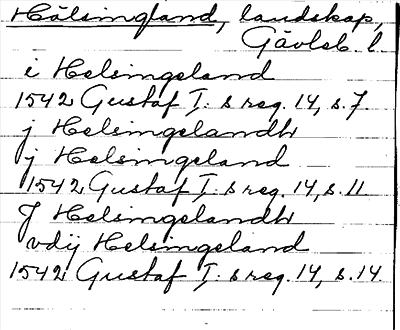 Hälsingland, landskap,
Gävleb. l.
i Helsingeland
1542 Gustaf I:s reg. 14, s. 7.
j Helsingelandh
j Helsingeland
1542 Gustaf I:s reg. 14, s. 11
J Helsingelandh
vdij Helsingeland
1542 Gustaf I:s reg. 14, s. 14